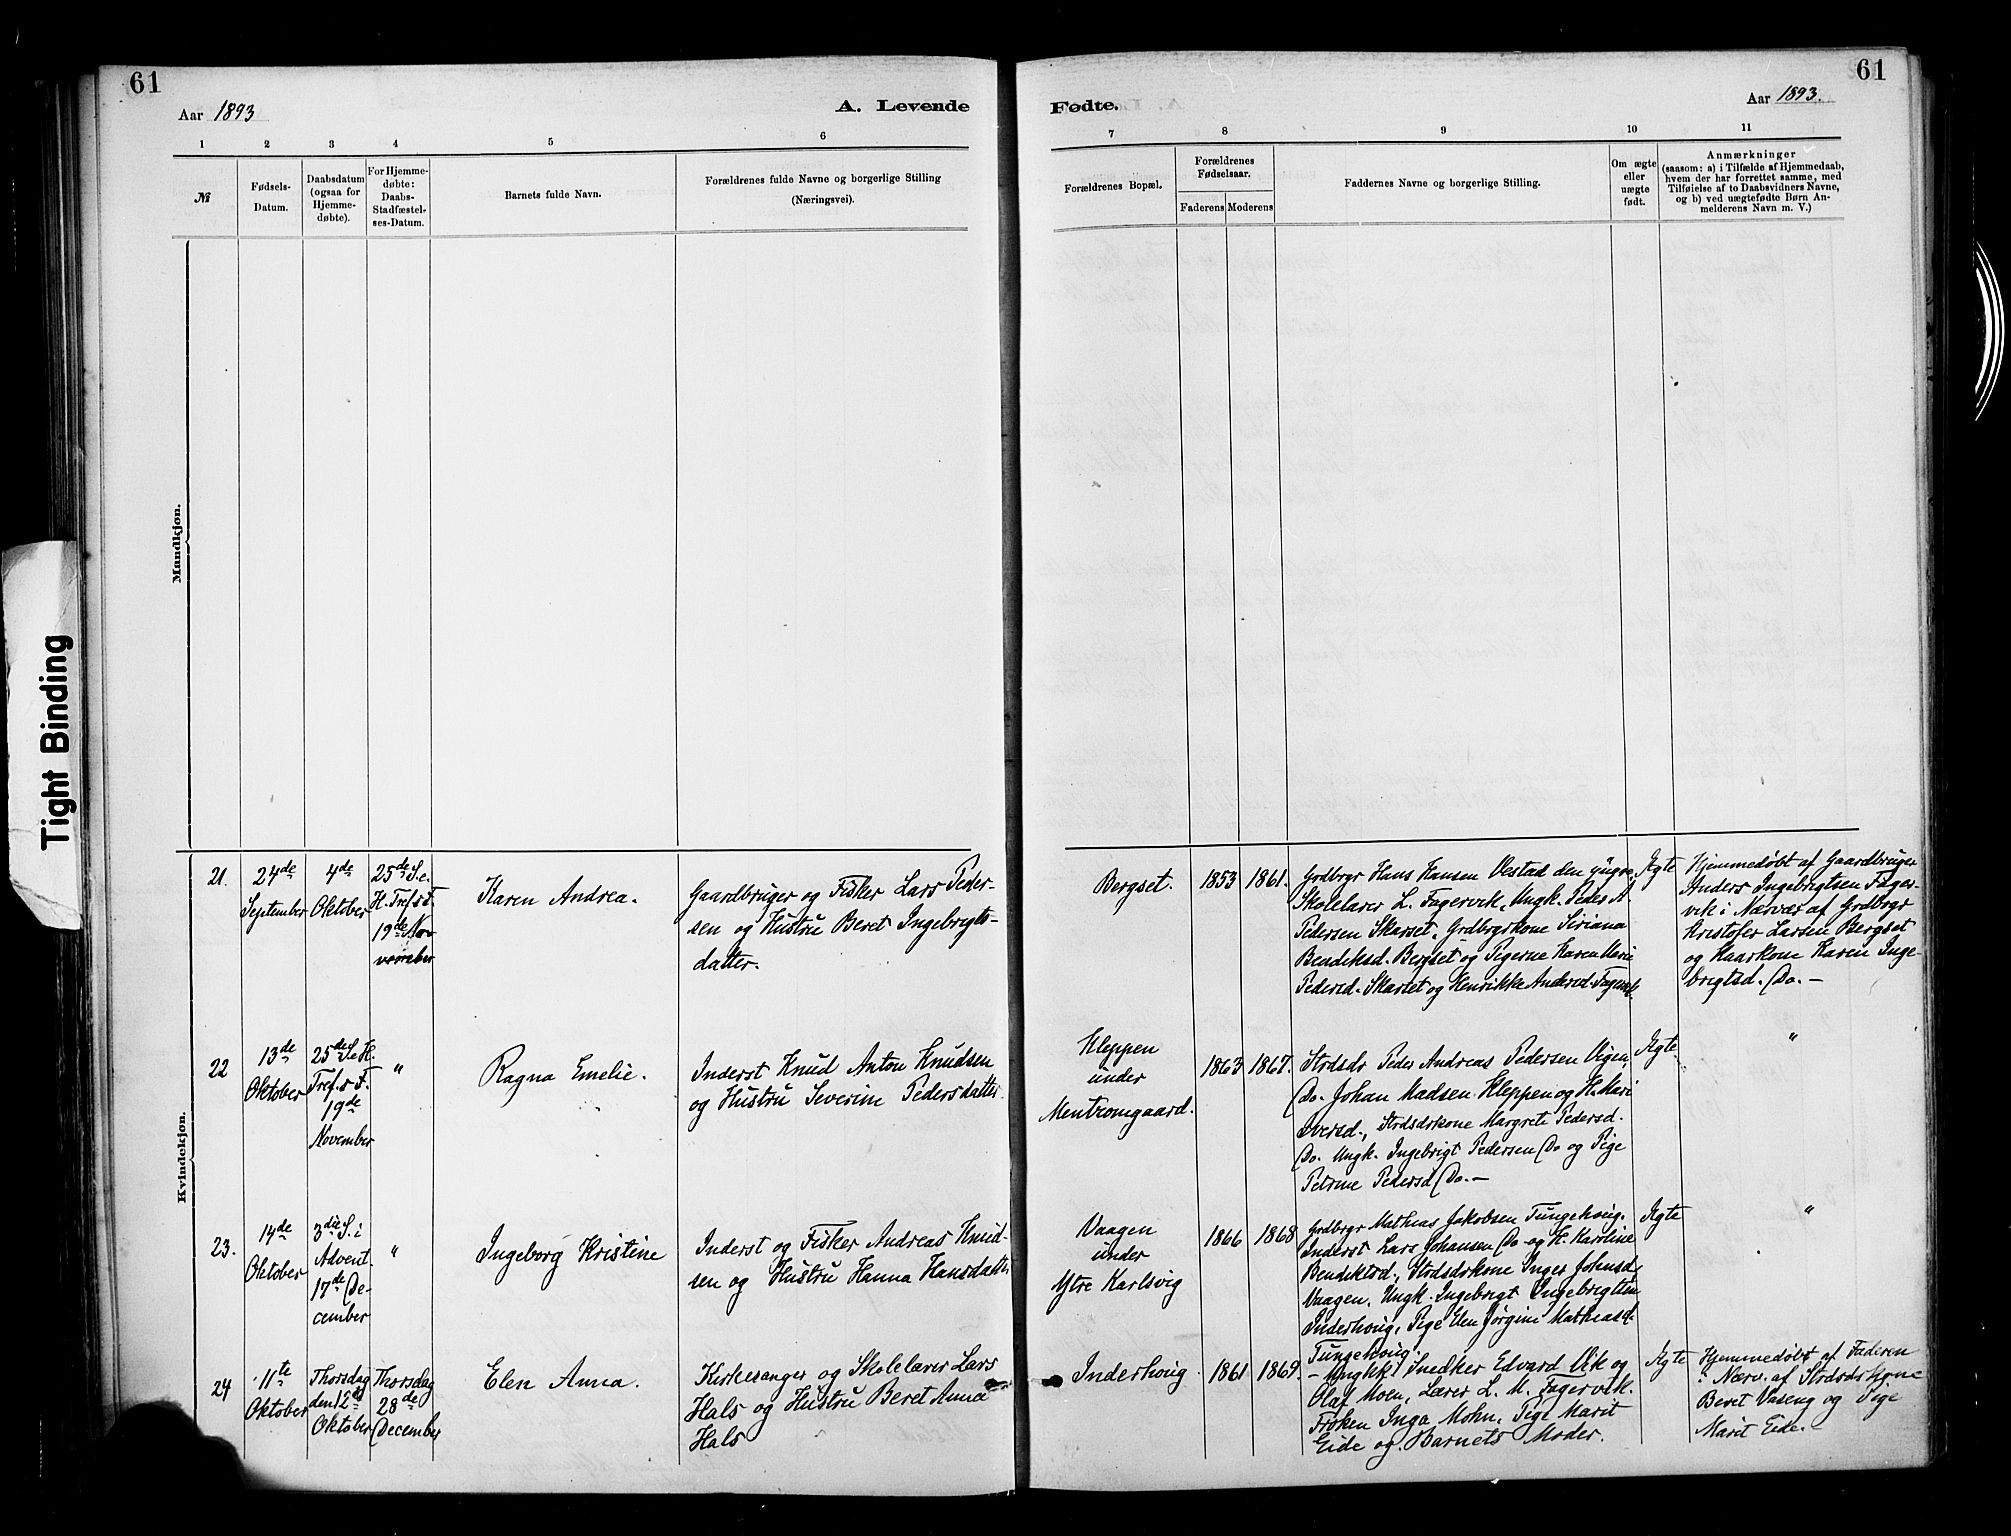 61
61
Aar 1893
A. Levende
Fødte.
Aar 1893.
1
2
3
4
5
6
7
8
9
10
11
№
Fødsels-
Datum.
Daabsdatum
(ogsaa for
Hjemme-
døbte).
For Hjemme-
døbte:
Daabs-
Stadfæstel-
ses-Datum.
Barnets fulde Navn.
Forældrenes fulde Navne og borgerlige Stilling
(Næringsvei).
Forældrenes Bopæl.
Forældrenes
Fødselsaar.
Faderens
Moderens
Faddernes Navne og borgerlige Stilling.
Om ægte
eller
uægte
født.
Anmærkninger
(saasom: a) i Tilfælde af Hjemmedaab,
hvem der har forrettet samme, med
Tilføielse af to Daabsvidners Navne,
og b) ved uægtefødte Børn An-
melderens Navn m. V.)
Mandkjøn.
Tight Binding
Kvindekjøn.
21.
24de
September
4de
Oktober
25de S. e.
H. Tref. s F.
19de No-
vember
Karen Andrea.
Gaardbruger og Fisker Lars Peder-
sen og Hustru Beret Ingebrigts-
datter.
Bergset.
1853
1861.
Grdbrgr Hans Hansen Vestad den yngre,
Skolelærer L. Fagervik, Ungk. Peder A.
Pedersen Skarset, Grdbrgrkone Siriana
Bendiksd. Bergset og Pigerne Karen Marie
Pedersd. Skarset og Henrikke Andersd. Fagervik.
Ægte
Hjemmedøbt af Gaardbruger
Anders Ingebrigtsen Fager-
vik i Nærvær af Grdbrgr
Kristofer Larsen Bergset
og Kaarkone Karen Inge-
brigtsd. Do. —
22
13de
Oktober
25de S. e. H.
Tref. s F.
19de
November
"
Ragna Emelie.
Inderst Knud Anton Knudsen
og Hustru Severine Pedersdatter
Kleppen
under
Mentromgaard.
1863
1867.
Strdsdr Peder Andreas Pedersen Vigen,
Do. Johan Madsen Kleppen og H. Mari
Iversd., Strdsdrkone Margrete Pedersd.
Do. Ungk. Ingebrigt Pedersen Do og Pige
Petrine Pedersd Do. —
Ægte
"
23.
14de
Oktober
3die S. i
Advent.
17de De-
cember
"
Ingeborg Kristine
Inderst og Fisker Andreas Knud-
sen og Hustru Hanna Hansdatter
Vaagen
under
Ytre Karlsvig
1866
1868
Grdbrgr Mathias Jakobsen Tungehoug.
Inderst Lars Johansen Do og H. Karoline
Bendiktsd., Strdsdrkone Inger Johnsd.
Vaagen, Ungk. Ingebrigt Ingebrigtsen
Inderhoug, Pige Elen Jørgine Mathiasd.
Tungehoug.
Ægte
"
24
11te
Oktober
Thorsdag
den 12te
Oktober
Thorsdag
28de
December
Elen Anna.
Kirkesanger og Skolelærer Lars
Hals og Hustru Beret Anna
Hals
Inderhoug
1861
1869.
— Ungk. Snedker Edvard Vik og
Olaf Moen, Lærer L. M. Fagervik.
Frøken Inga Mohn, Pige Marit
Eide og Barnets Moder.
Ægte
Hjemmedøbt af Faderen
i Nærv. af Strdsdrkone
Beret Vaseng og Pige
Marit Eide. —